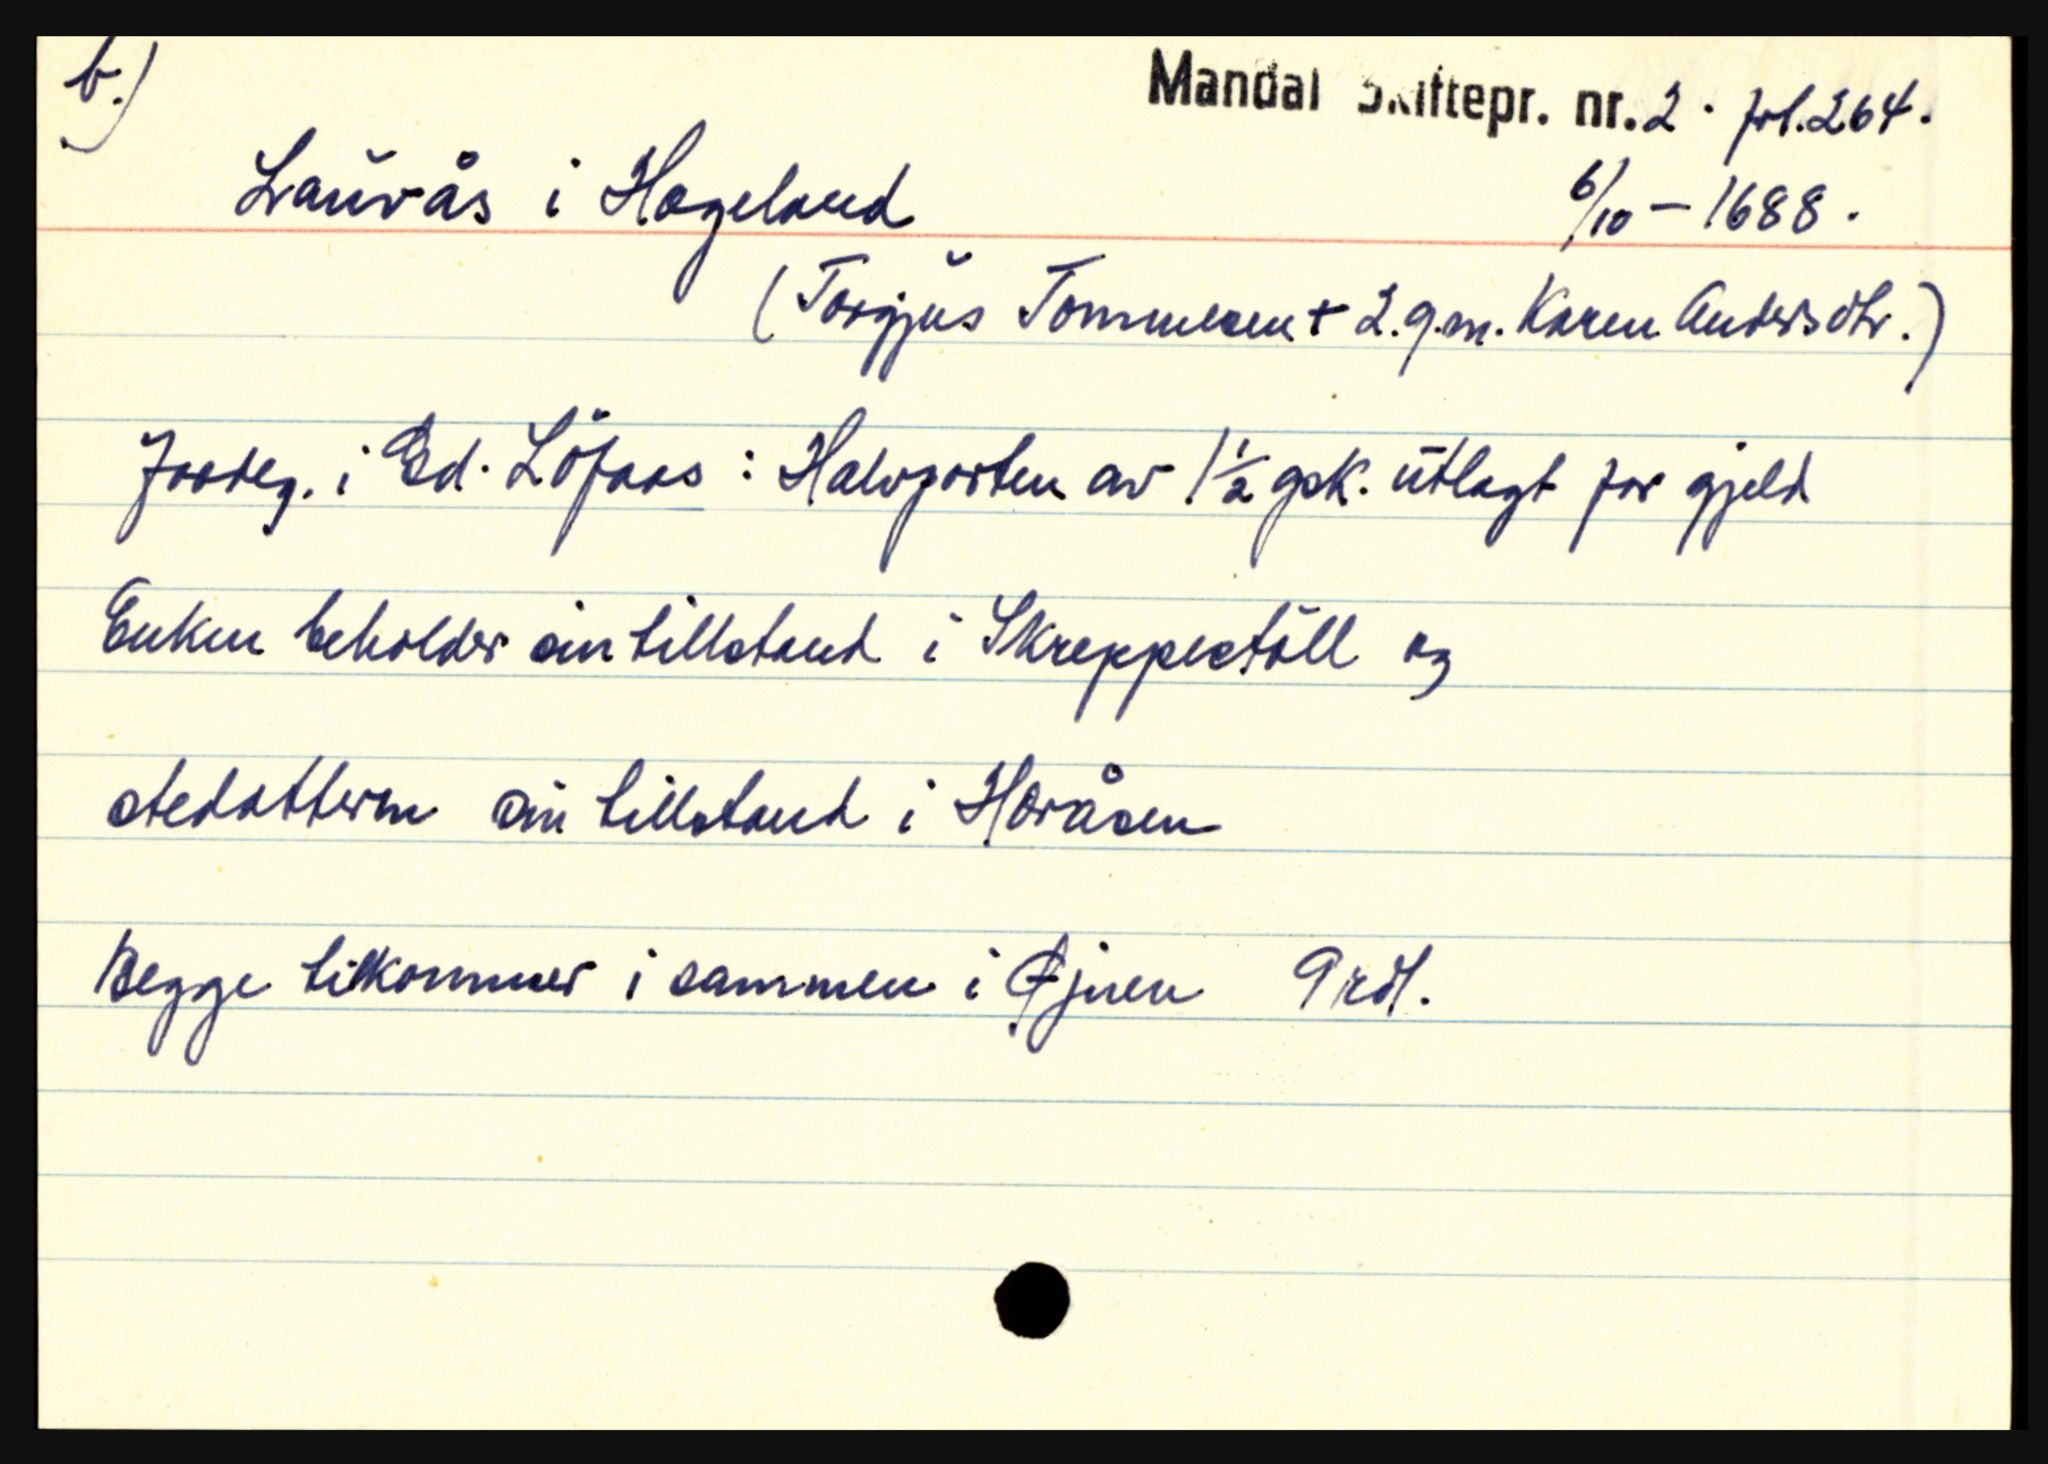 b.)
Mandal Skiftepr. nr. 2 · fol. 264.
Lauvås i Hægeland
6/10 – 1688.
(Torgjus Tommesen + 2. g.m. Karen Andersdtr.)
Jordeg. i Ød. Löfaas : Halvparten av 1 1/2 gsk. utlagt for gjeld
Enken beholder sin tillstand i Skreppestöll og
stedatteren sin tillstand i Høråsen
Begge tilkommer i sammen i Øjnen 9 rdl.